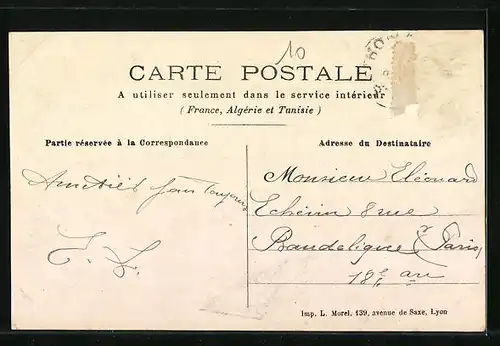 10
CARTE POSTALE
A utiliser seulement dans le service intérieur
(France, Algérie et Tunisie)
Partie réservée à la Correspondance
Adresse du Destinataire
Amitiés
Monsieur Eléonard
Echerin 8 rue
Baudelique Paris
18e arr
Imp. L. Morel, 139, avenue de Saxe, Lyon